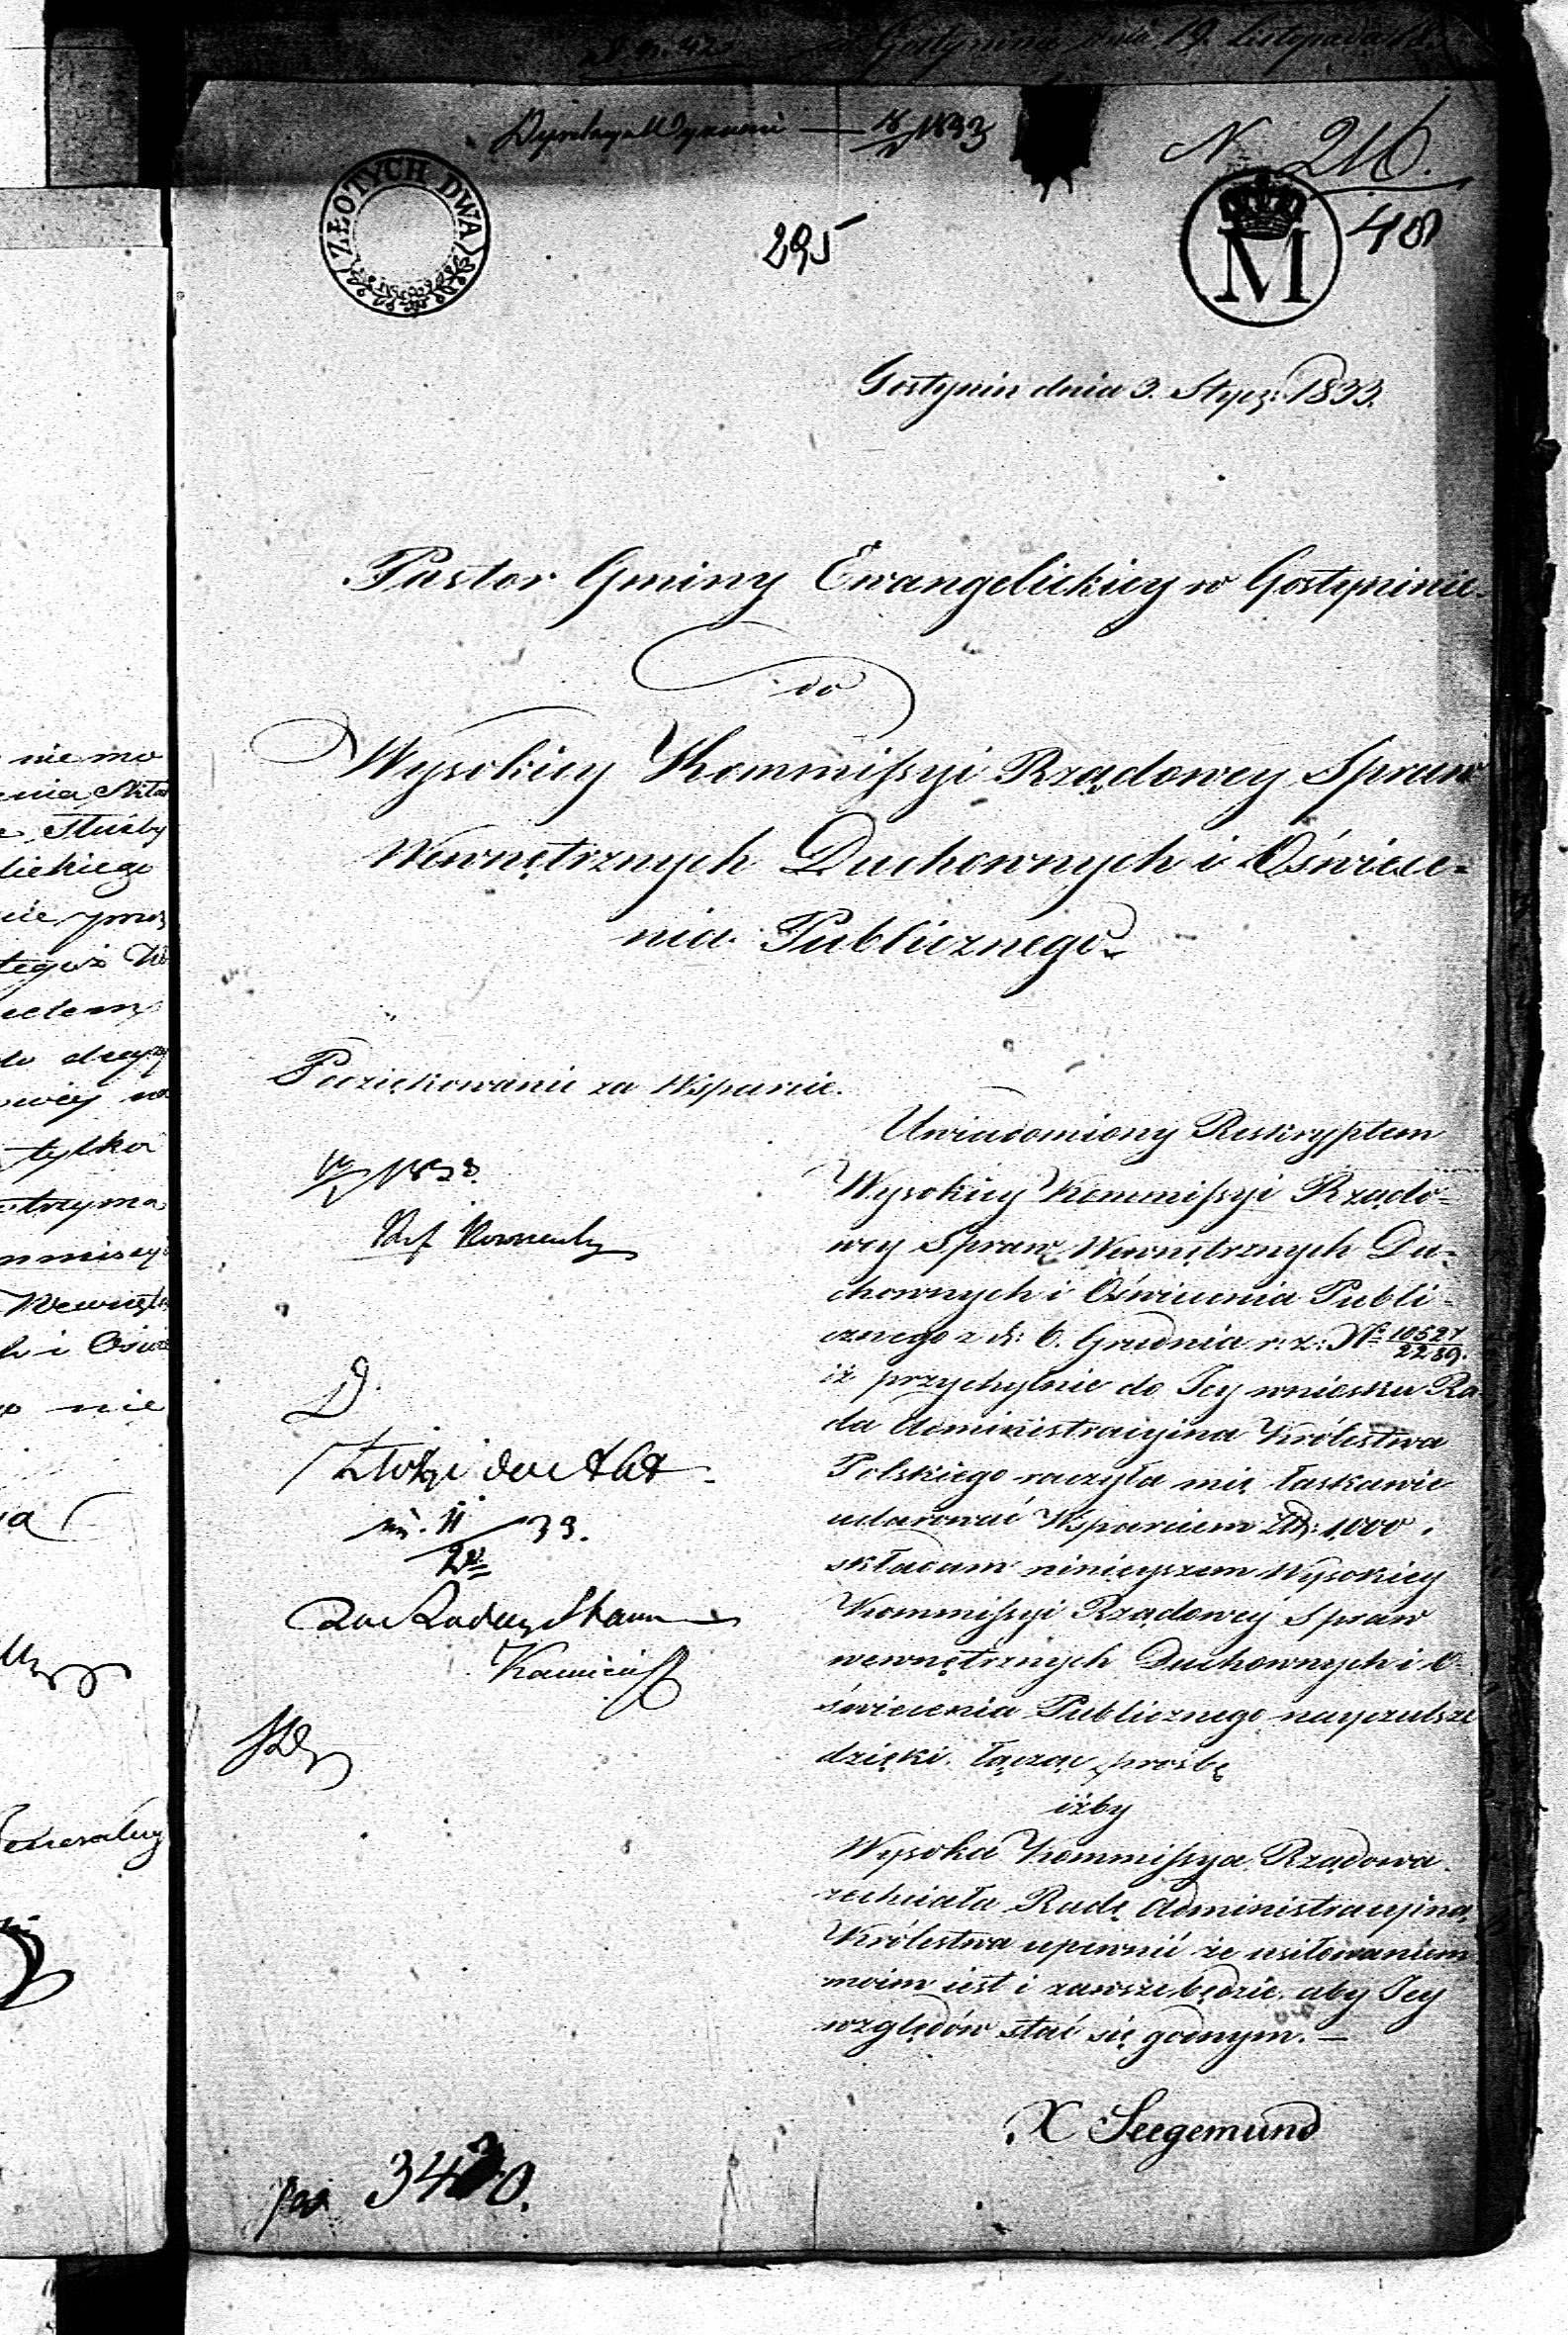 w Gostyninie dnia 19. Listopada 18
N 216.
1833
48
ZŁOTYCH DWA
M
295
Gostynin dnia 3. Stycz: 1833.
Pastor Gminy Ewangelickiey w Gostyninie.
do
Wysokiey Kommissyi Rządowey Spraw
Wewnętrznych Duchownych i Oświece-
nia Publicznego.
Podziękowanie za Wsparcie.
Uwiadomiony Reskryptem
Wysokiey Kommissyi Rządo-
wey Spraw Wewnętrznych Du-
chownych i Oświecenia Publi-
cznego z d: 6. Grudnia r: z: Nº 10527/2289.
iż przychylnie do Jey wniosku Ra
da Administracyina Królestwa
Polskiego raczyła mię łaskawie
udarować Wsparciem Złp: 1000.
składam ninieyszem Wysokiey
Kommissyi Rządowey Spraw
wewnętrznych Duchownych i O-
świecenia Publicznego nayczulsze
dzięki, łącząc prośbę
iżby
Wysoka Kommissya Rządowa
zechciała Radę Administracyiną
Królestwa upewnić że usiłowaniem
moim iest i zawsze będzie, aby Jey
względów stać się godnym. —
X Seegemund
1833.
D.
Złożyć do Akt
33.
nie mo
Służby
lickiego
tegoż
tylko
trzyma
mmissyi
Wewnętr
h i Oświe
nie